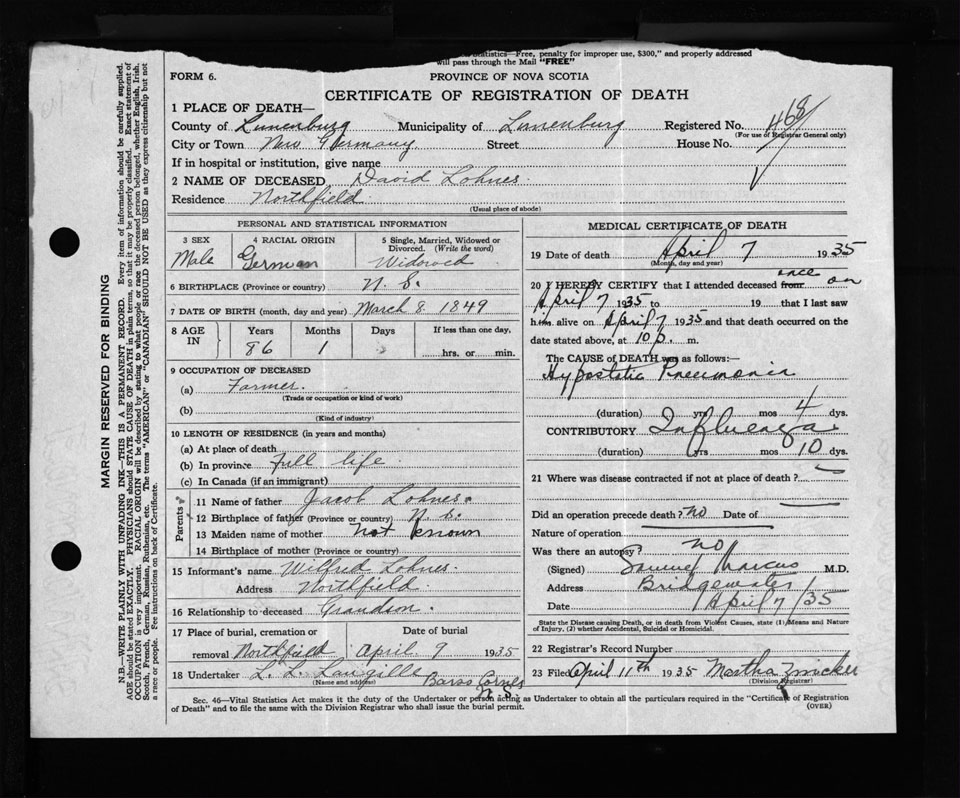 MARGIN RESERVED FOR BINDING
N.B.—WRITE PLAINLY WITH UNFADING INK—THIS IS A PERMANENT RECORD. Every item of information should be carefully supplied.
AGE should be stated EXACTLY. PHYSICIANS should STATE CAUSE OF DEATH in plain terms, so that it may be properly classified. Exact statement of
OCCUPATION is very important. RACIAL ORIGIN will be described by stating to what people or race the deceased person belonged, whether English, Irish,
Scotch, French, German, Russian, Ruthenian, etc. The terms "AMERICAN" or "CANADIAN" SHOULD NOT BE USED as they express citizenship but not
a race or people. See instructions on back of Certificate.
Statistics—Free, penalty for improper use, $300," and properly addressed
will pass through the Mail "FREE"
FORM 6. PROVINCE OF NOVA SCOTIA
CERTIFICATE OF REGISTRATION OF DEATH
1 PLACE OF DEATH—
County of Lunenburg Municipality of Lunenburg Registered No. 468
(For use of Registrar General only)
City or Town New Germany Street House No.
If in hospital or institution, give name
2 NAME OF DECEASED David Lohnes
Residence Northfield
(Usual place of abode)
PERSONAL AND STATISTICAL INFORMATION
3 SEX 4 RACIAL ORIGIN 5 Single, Married, Widowed or
Divorced. (Write the word)
Male German Widowed
6 BIRTHPLACE (Province or country) N. S.
7 DATE OF BIRTH (month, day and year) March 8 1849
8 AGE IN Years Months Days If less than one day,
86 1 hrs. or min.
9 OCCUPATION OF DECEASED
(a) Farmer.
(Trade or occupation or kind of work)
(b)
(Kind of industry)
10 LENGTH OF RESIDENCE (in years and months)
(a) At place of death
(b) In province full life
(c) In Canada (if an immigrant)
Parents
11 Name of father Jacob Lohnes.
12 Birthplace of father (Province or country) N. S.
13 Maiden name of mother Not known
14 Birthplace of mother (Province or country)
15 Informant's name Wilfred Lohnes.
Address Northfield
16 Relationship to deceased Grandson.
17 Place of burial, cremation or Date of burial
removal Northfield April 9 1935
18 Undertaker L. L. Langille Barss Corner
(Name and address) N. S.
MEDICAL CERTIFICATE OF DEATH
19 Date of death April 7 1935
(Month, day and year)
20 I HEREBY CERTIFY that I attended deceased from once on
April 7 1935 to 19 that I last saw
him alive on April 7 1935 and that death occurred on
date stated above, at 10 p. m.
The CAUSE of DEATH was as follows:—
Hypostatic Pneumonia
(duration) yrs mos 4 dys.
CONTRIBUTORY Influenza
(duration) yrs mos 10 dys.
21 Where was disease contracted if not at place of death?
Did an operation precede death? no Date of
Nature of operation
Was there an autopsy? no
(Signed) Samuel Marcus M.D.
Address Bridgewater
Date April 7/35
State the Disease causing Death, or in death from Violent Causes, state (1) Means and Nature
of Injury, (2) whether Accidental, Suicidal or Homicidal.
22 Registrar's Record Number
23 Filed April 11th 1935 Martha Zwicker
(Division Registrar)
Sec. 46—Vital Statistics Act makes it the duty of the Undertaker or person acting as Undertaker to obtain all the particulars required in the "Certificate of Registration
of Death" and to file the same with the Division Registrar who shall issue the burial permit. (OVER)